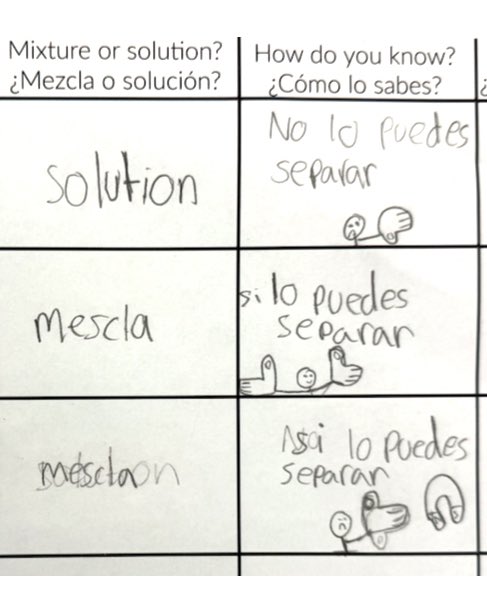 Mixture or solution?
¿Mezcla o solución?
How do you know?
¿Cómo lo sabes?
solution
No lo puedes
separar
mescla
si lo puedes
separar
mescla
lo puedes
separar